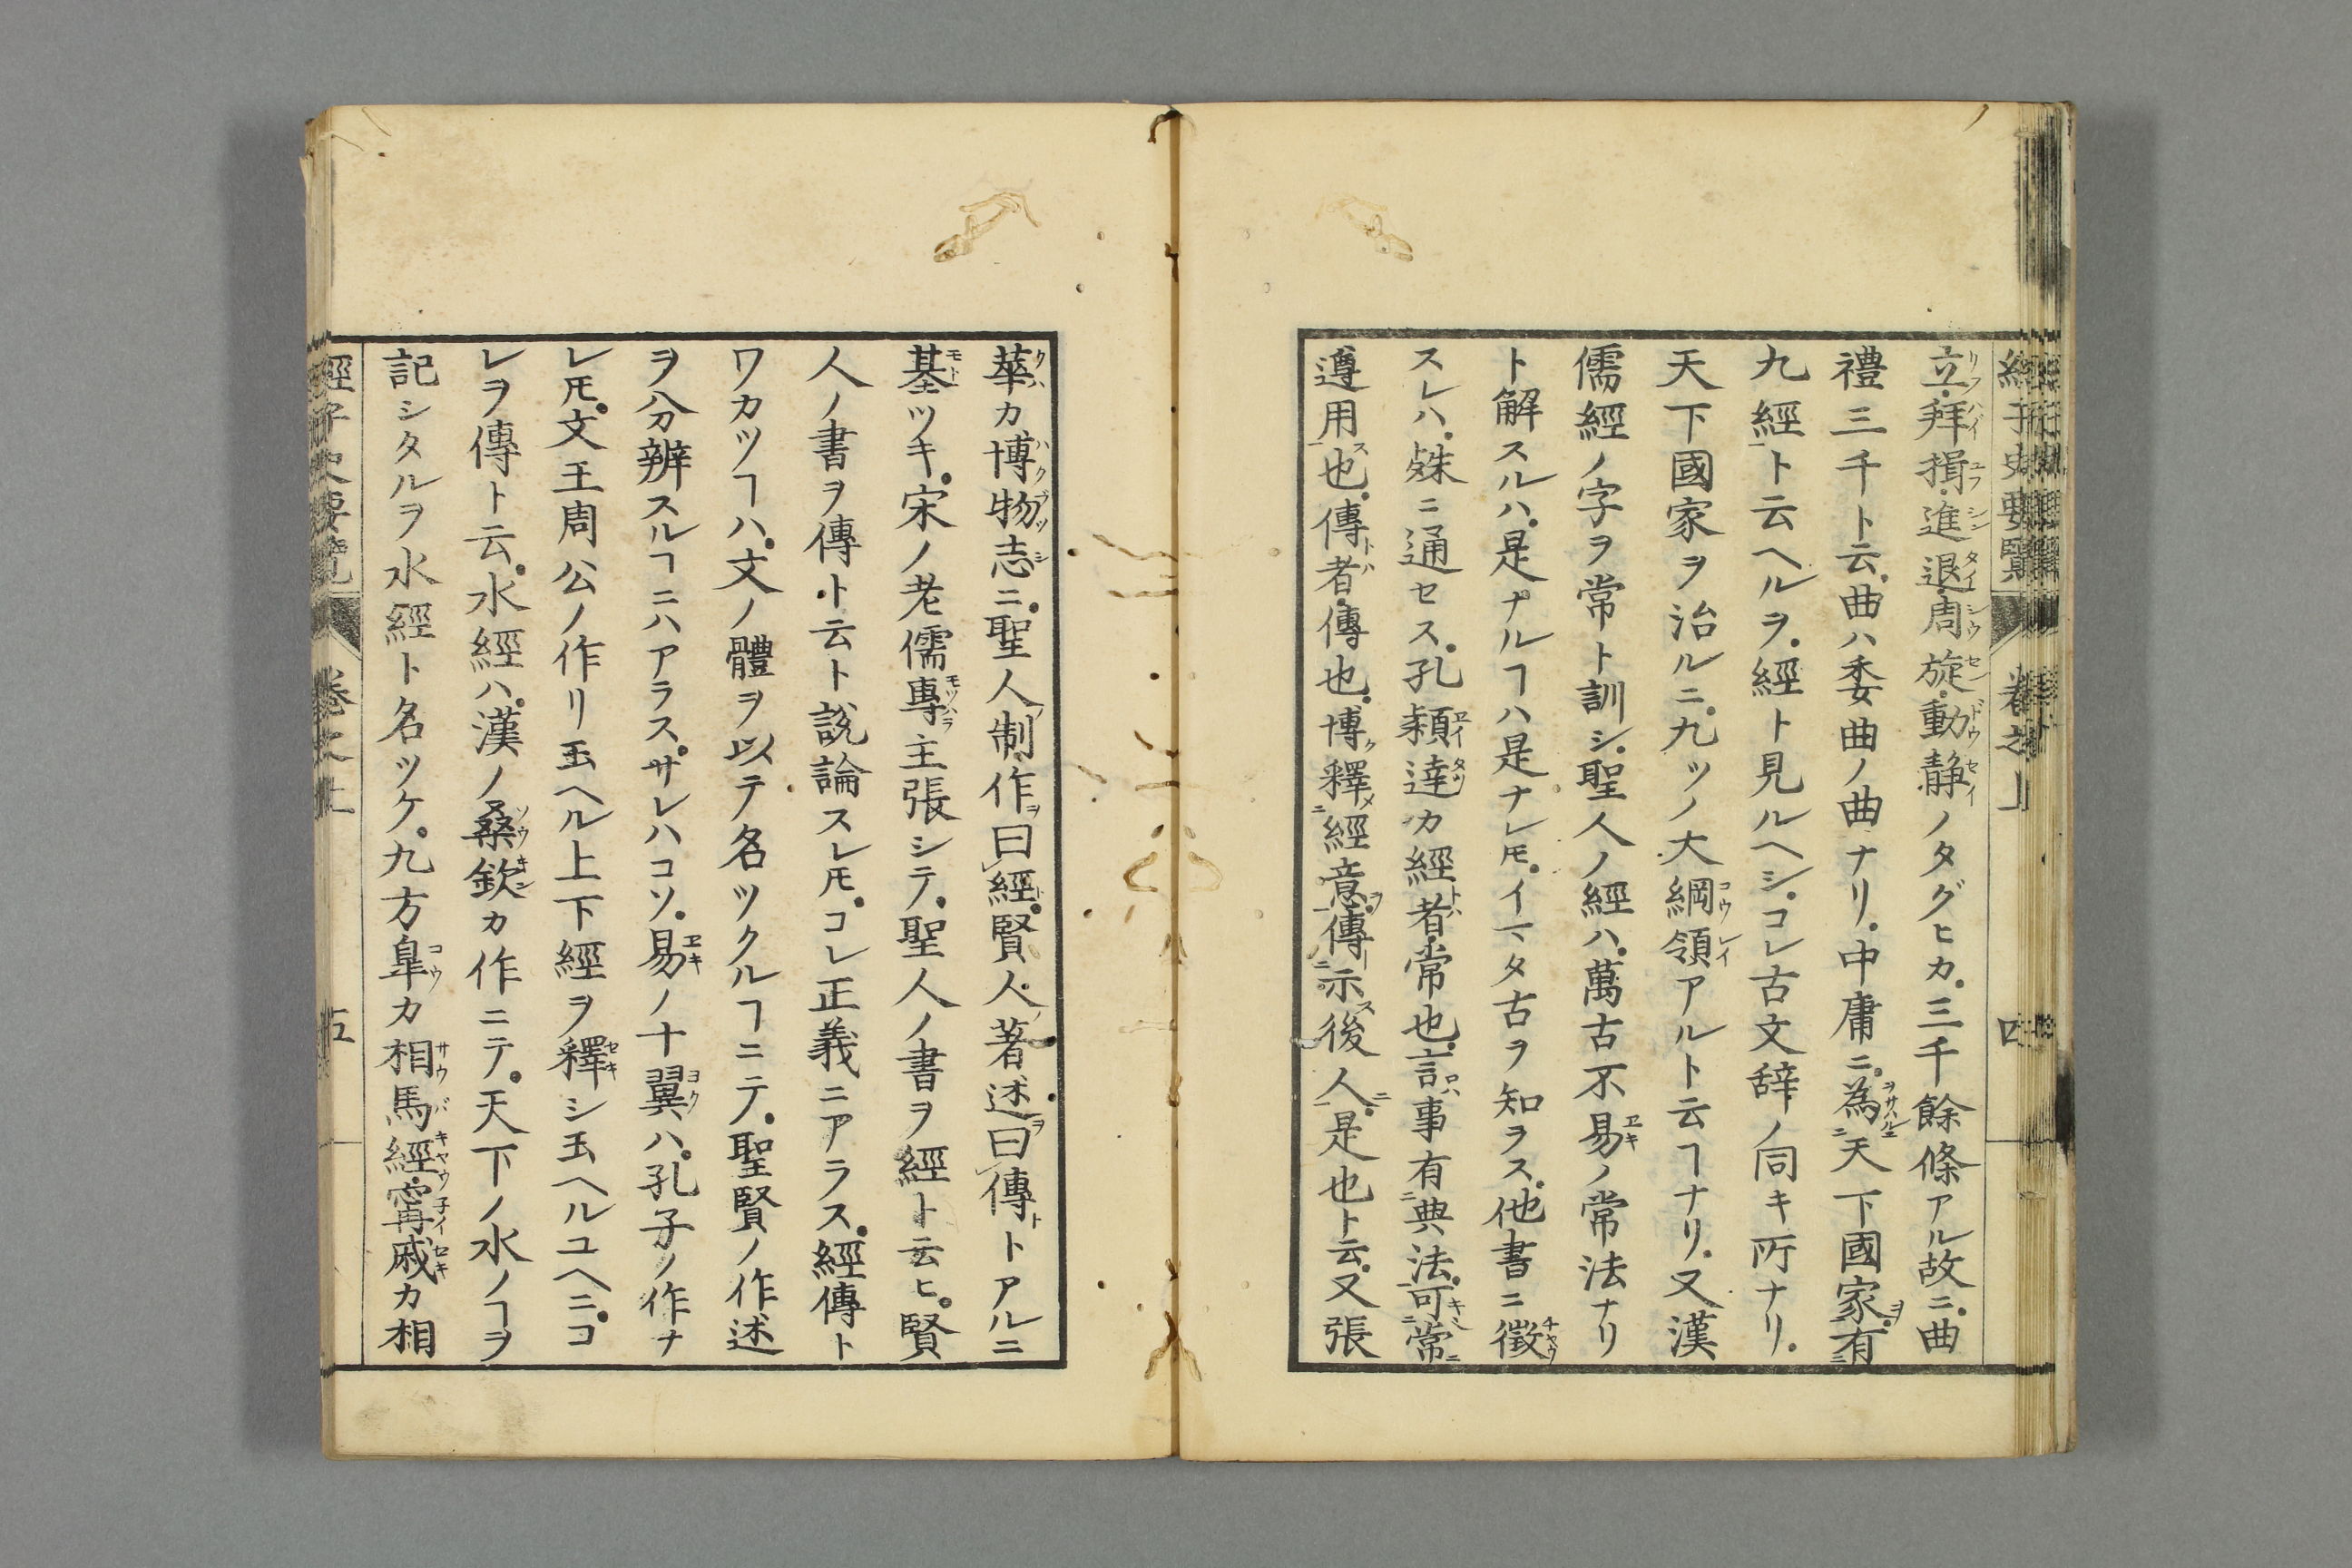 經子史要覽 卷之上 四
立拜揖進退周旋動静ノタグヒカ三千餘條アル故ニ曲
禮三千ト云曲ハ委曲ノ曲ナリ中庸ニ為天下國家有
九經ト云ヘルヲ經ト見ルヘシコレ古文辞ノ同キ所ナリ
天下國家ヲ治ルニ九ツノ大綱領アルト云ヿナリ又漢
儒經ノ字ヲ常ト訓シ聖人ノ經ハ萬古不易ノ常法ナリ
ト解スルハ是ナルヿハ是ナレ𪜈イマタ古ヲ知ラス他書ニ徴
スレハ殊ニ通セス孔穎達カ經者常也言事有典法可常
遵用也傳者傳也博釋經意傳示後人是也ト云又張
華カ博物志ニ聖人制作曰經賢人著述曰傳トアルニ
基ツキ宋ノ老儒專主張シテ聖人ノ書ヲ經ト云ヒ賢
人ノ書ヲ傳ト云ト說論スレ𪜈コレ正義ニアラス經傳ト
ワカツヿハ文ノ體ヲ以テ名ツクルヿニテ聖賢ノ作述
ヲ分辨スルヿニハアラスサレハコソ易ノ十翼ハ孔子ノ作ナ
レ𪜈文王周公ノ作リ玉ヘル上下經ヲ釋シ玉ヘルユヘニコ
レヲ傳ト云水經ハ漢ノ桑欽カ作ニテ天下ノ水ノヿヲ
記シタルヲ水經ト名ツケ九方皐カ相馬經甯戚カ相
經子史要覽 卷之上 五